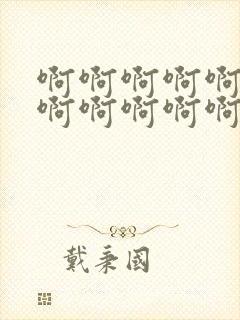 啊啊啊啊啊
啊啊啊啊啊
戴秉國